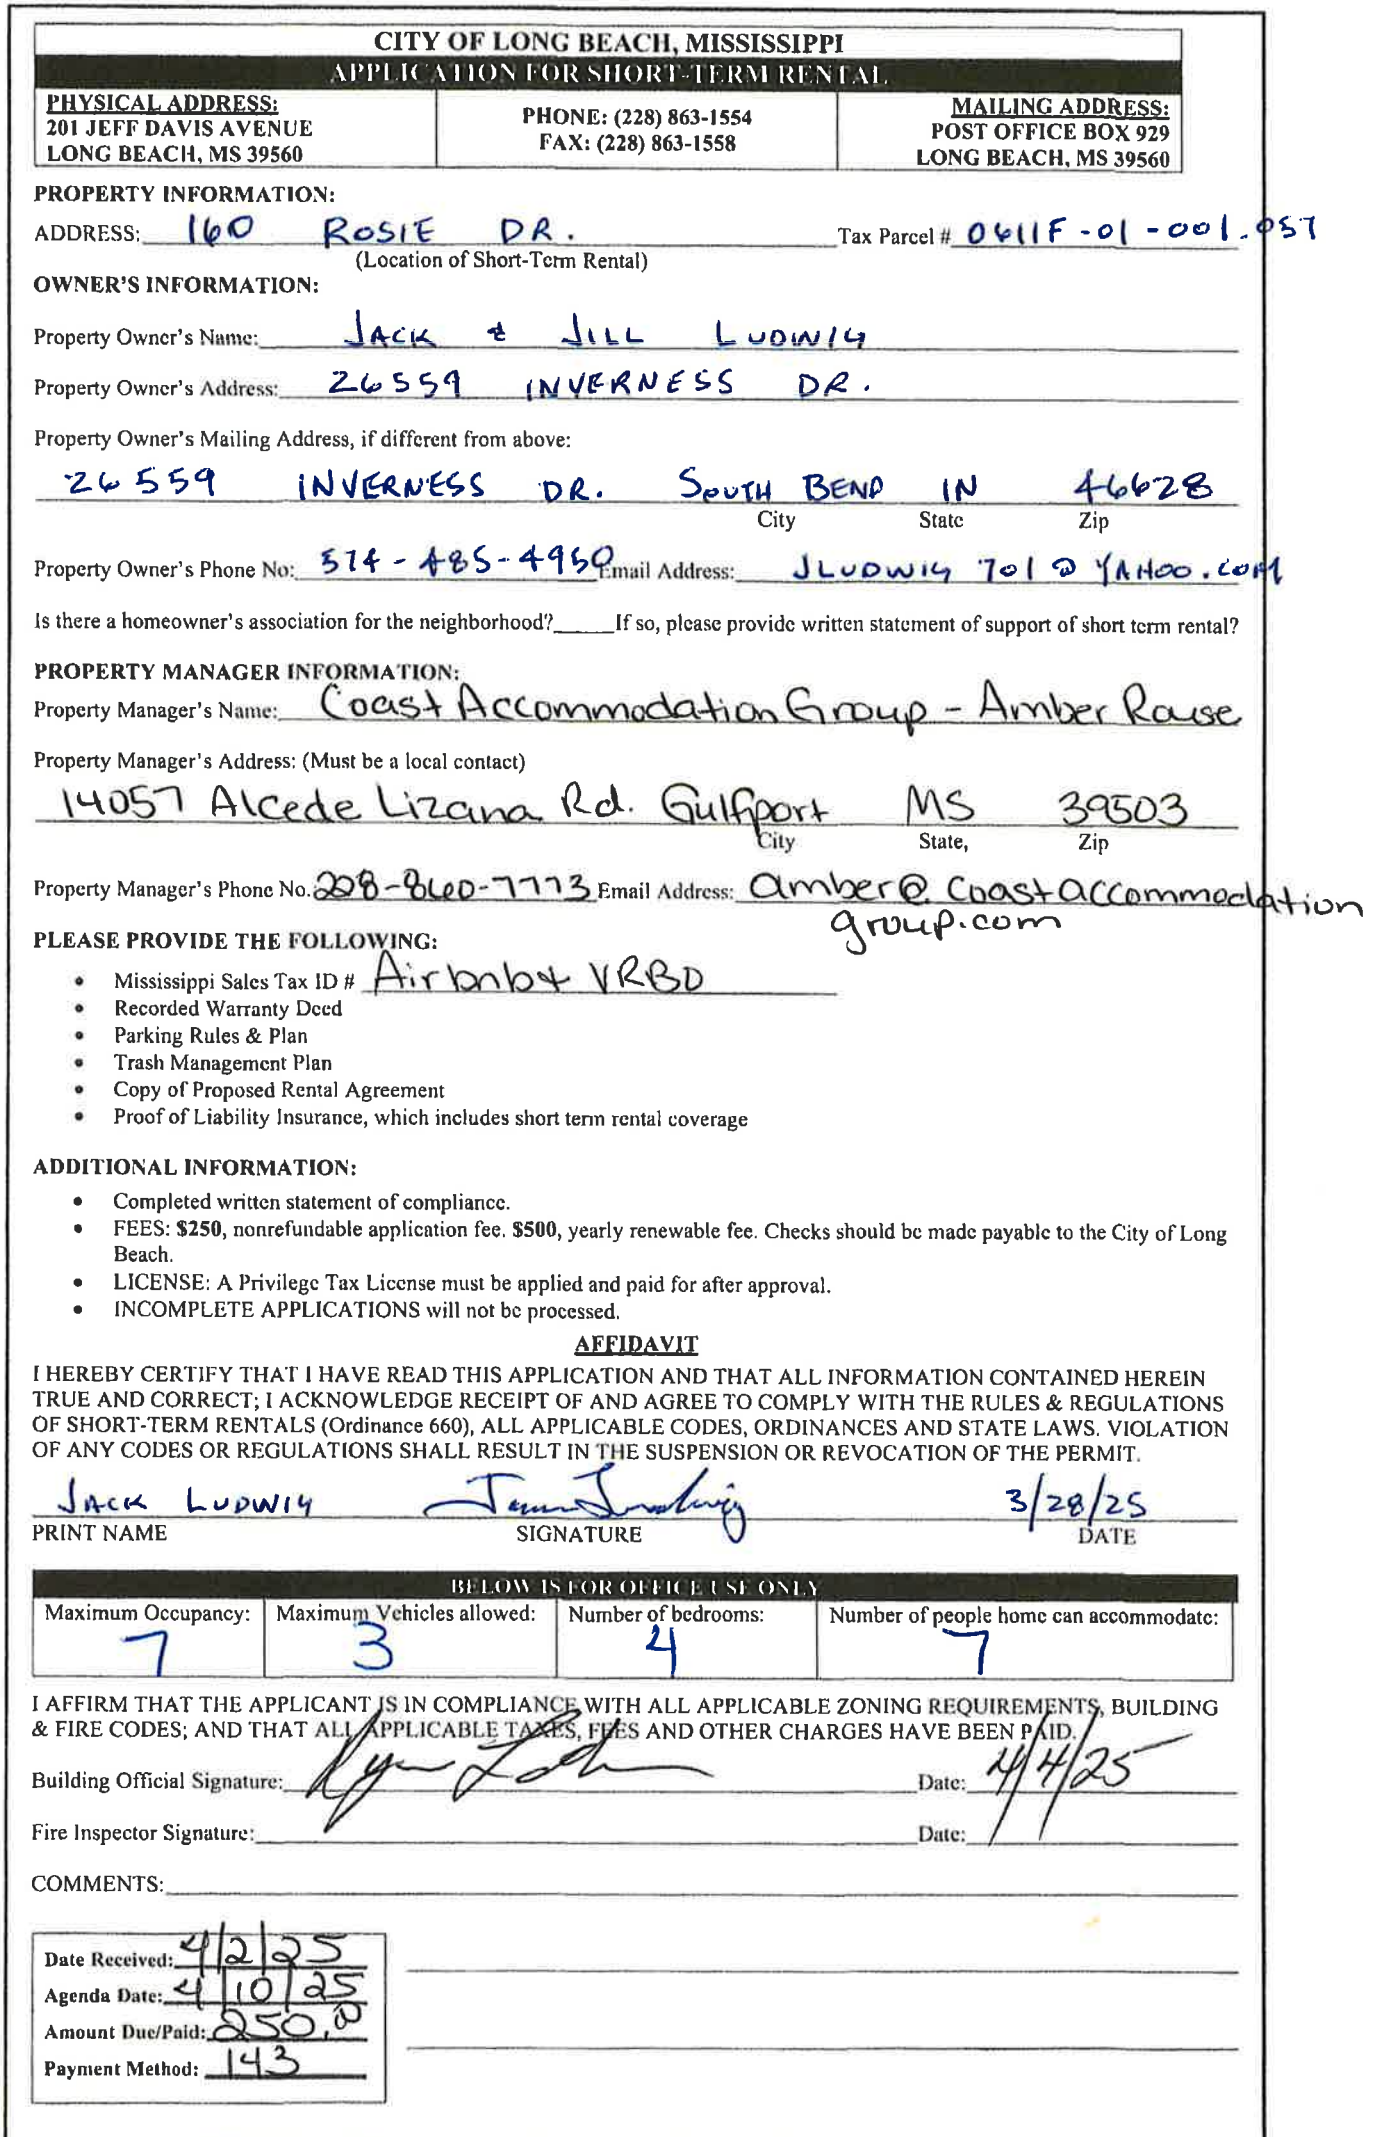 CITY OF LONG BEACH, MISSISSIPPI
APPLICATION FOR SHORT-TERM RENTAL
PHYSICAL ADDRESS:
201 JEFF DAVIS AVENUE
LONG BEACH, MS 39560
PHONE: (228) 863-1554
FAX: (228) 863-1558
MAILING ADDRESS:
POST OFFICE BOX 929
LONG BEACH, MS 39560
PROPERTY INFORMATION:
ADDRESS: 160 ROSIE DR. Tax Parcel # 0611F-01-001.057
(Location of Short-Term Rental)
OWNER'S INFORMATION:
Property Owner's Name: JACK & JILL LUDWIG
Property Owner's Address: 26559 INVERNESS DR.
Property Owner's Mailing Address, if different from above:
26559 INVERNESS DR. SOUTH BEND IN 46628
City State Zip
Property Owner's Phone No: 574-485-4950 Email Address: JLUDWIG701@YAHOO.COM
Is there a homeowner's association for the neighborhood?_____If so, please provide written statement of support of short term rental?
PROPERTY MANAGER INFORMATION:
Property Manager's Name: Coast Accommodation Group - Amber Rouse
Property Manager's Address: (Must be a local contact)
14057 Alcede Lizana Rd. Gulfport MS 39503
City State, Zip
Property Manager's Phone No. 228-860-7773 Email Address: amber@coastaccommodation
group.com
PLEASE PROVIDE THE FOLLOWING:
• Mississippi Sales Tax ID # Airbnb & VRBO
• Recorded Warranty Deed
• Parking Rules & Plan
• Trash Management Plan
• Copy of Proposed Rental Agreement
• Proof of Liability Insurance, which includes short term rental coverage
ADDITIONAL INFORMATION:
• Completed written statement of compliance.
• FEES: $250, nonrefundable application fee. $500, yearly renewable fee. Checks should be made payable to the City of Long
Beach.
• LICENSE: A Privilege Tax License must be applied and paid for after approval.
• INCOMPLETE APPLICATIONS will not be processed.
AFFIDAVIT
I HEREBY CERTIFY THAT I HAVE READ THIS APPLICATION AND THAT ALL INFORMATION CONTAINED HEREIN
TRUE AND CORRECT; I ACKNOWLEDGE RECEIPT OF AND AGREE TO COMPLY WITH THE RULES & REGULATIONS
OF SHORT-TERM RENTALS (Ordinance 660), ALL APPLICABLE CODES, ORDINANCES AND STATE LAWS. VIOLATION
OF ANY CODES OR REGULATIONS SHALL RESULT IN THE SUSPENSION OR REVOCATION OF THE PERMIT.
JACK LUDWIG 3/28/25
PRINT NAME SIGNATURE DATE
BELOW IS FOR OFFICE USE ONLY
Maximum Occupancy: Maximum Vehicles allowed: Number of bedrooms: Number of people home can accommodate:
7 3 4 7
I AFFIRM THAT THE APPLICANT IS IN COMPLIANCE WITH ALL APPLICABLE ZONING REQUIREMENTS, BUILDING
& FIRE CODES; AND THAT ALL APPLICABLE TAXES, FEES AND OTHER CHARGES HAVE BEEN PAID.
Building Official Signature: Date: 4/4/25
Fire Inspector Signature: Date:
COMMENTS:
Date Received: 4/2/25
Agenda Date: 4/10/25
Amount Due/Paid: 250.00
Payment Method: 143